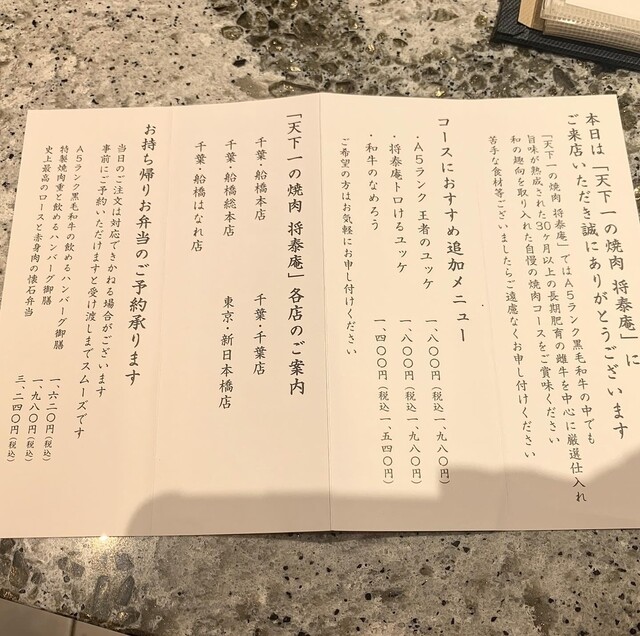 本日は「天下一の焼肉 将泰庵」に
ご来店いただき誠にありがとうございます
「天下一の焼肉 将泰庵」ではA5ランク黒毛和牛の中でも
旨味が熟成された30ヶ月以上の長期肥育の雌牛を中心に厳選仕入れ
和の趣向を取り入れた自慢の焼肉コースをご賞味ください
苦手な食材等ございましたらご遠慮なくお申し付けください
コースにおすすめ追加メニュー
・A5ランク 王者のユッケ 一、八〇〇円(税込一、九八〇円)
・将泰庵トロけるユッケ 一、八〇〇円(税込一、九八〇円)
・和牛のなめろう 一、四〇〇円(税込一、五四〇円)
ご希望の方はお気軽にお申し付けください
「天下一の焼肉 将泰庵」各店のご案内
千葉・船橋本店 千葉・千葉店
千葉・船橋総本店 東京・新日本橋店
千葉・船橋はなれ店
お持ち帰りお弁当のご予約承ります
当日のご注文は対応できかねる場合がございます
事前にご予約いただけますと受け渡しまでスムーズです
A5ランク黒毛和牛の飲めるハンバーグ御膳 一、六二〇円(税込)
特製焼肉重と飲めるハンバーグ御膳 一、九八〇円(税込)
史上最高のロースと赤身肉の懐石弁当 三、二四〇円(税込)